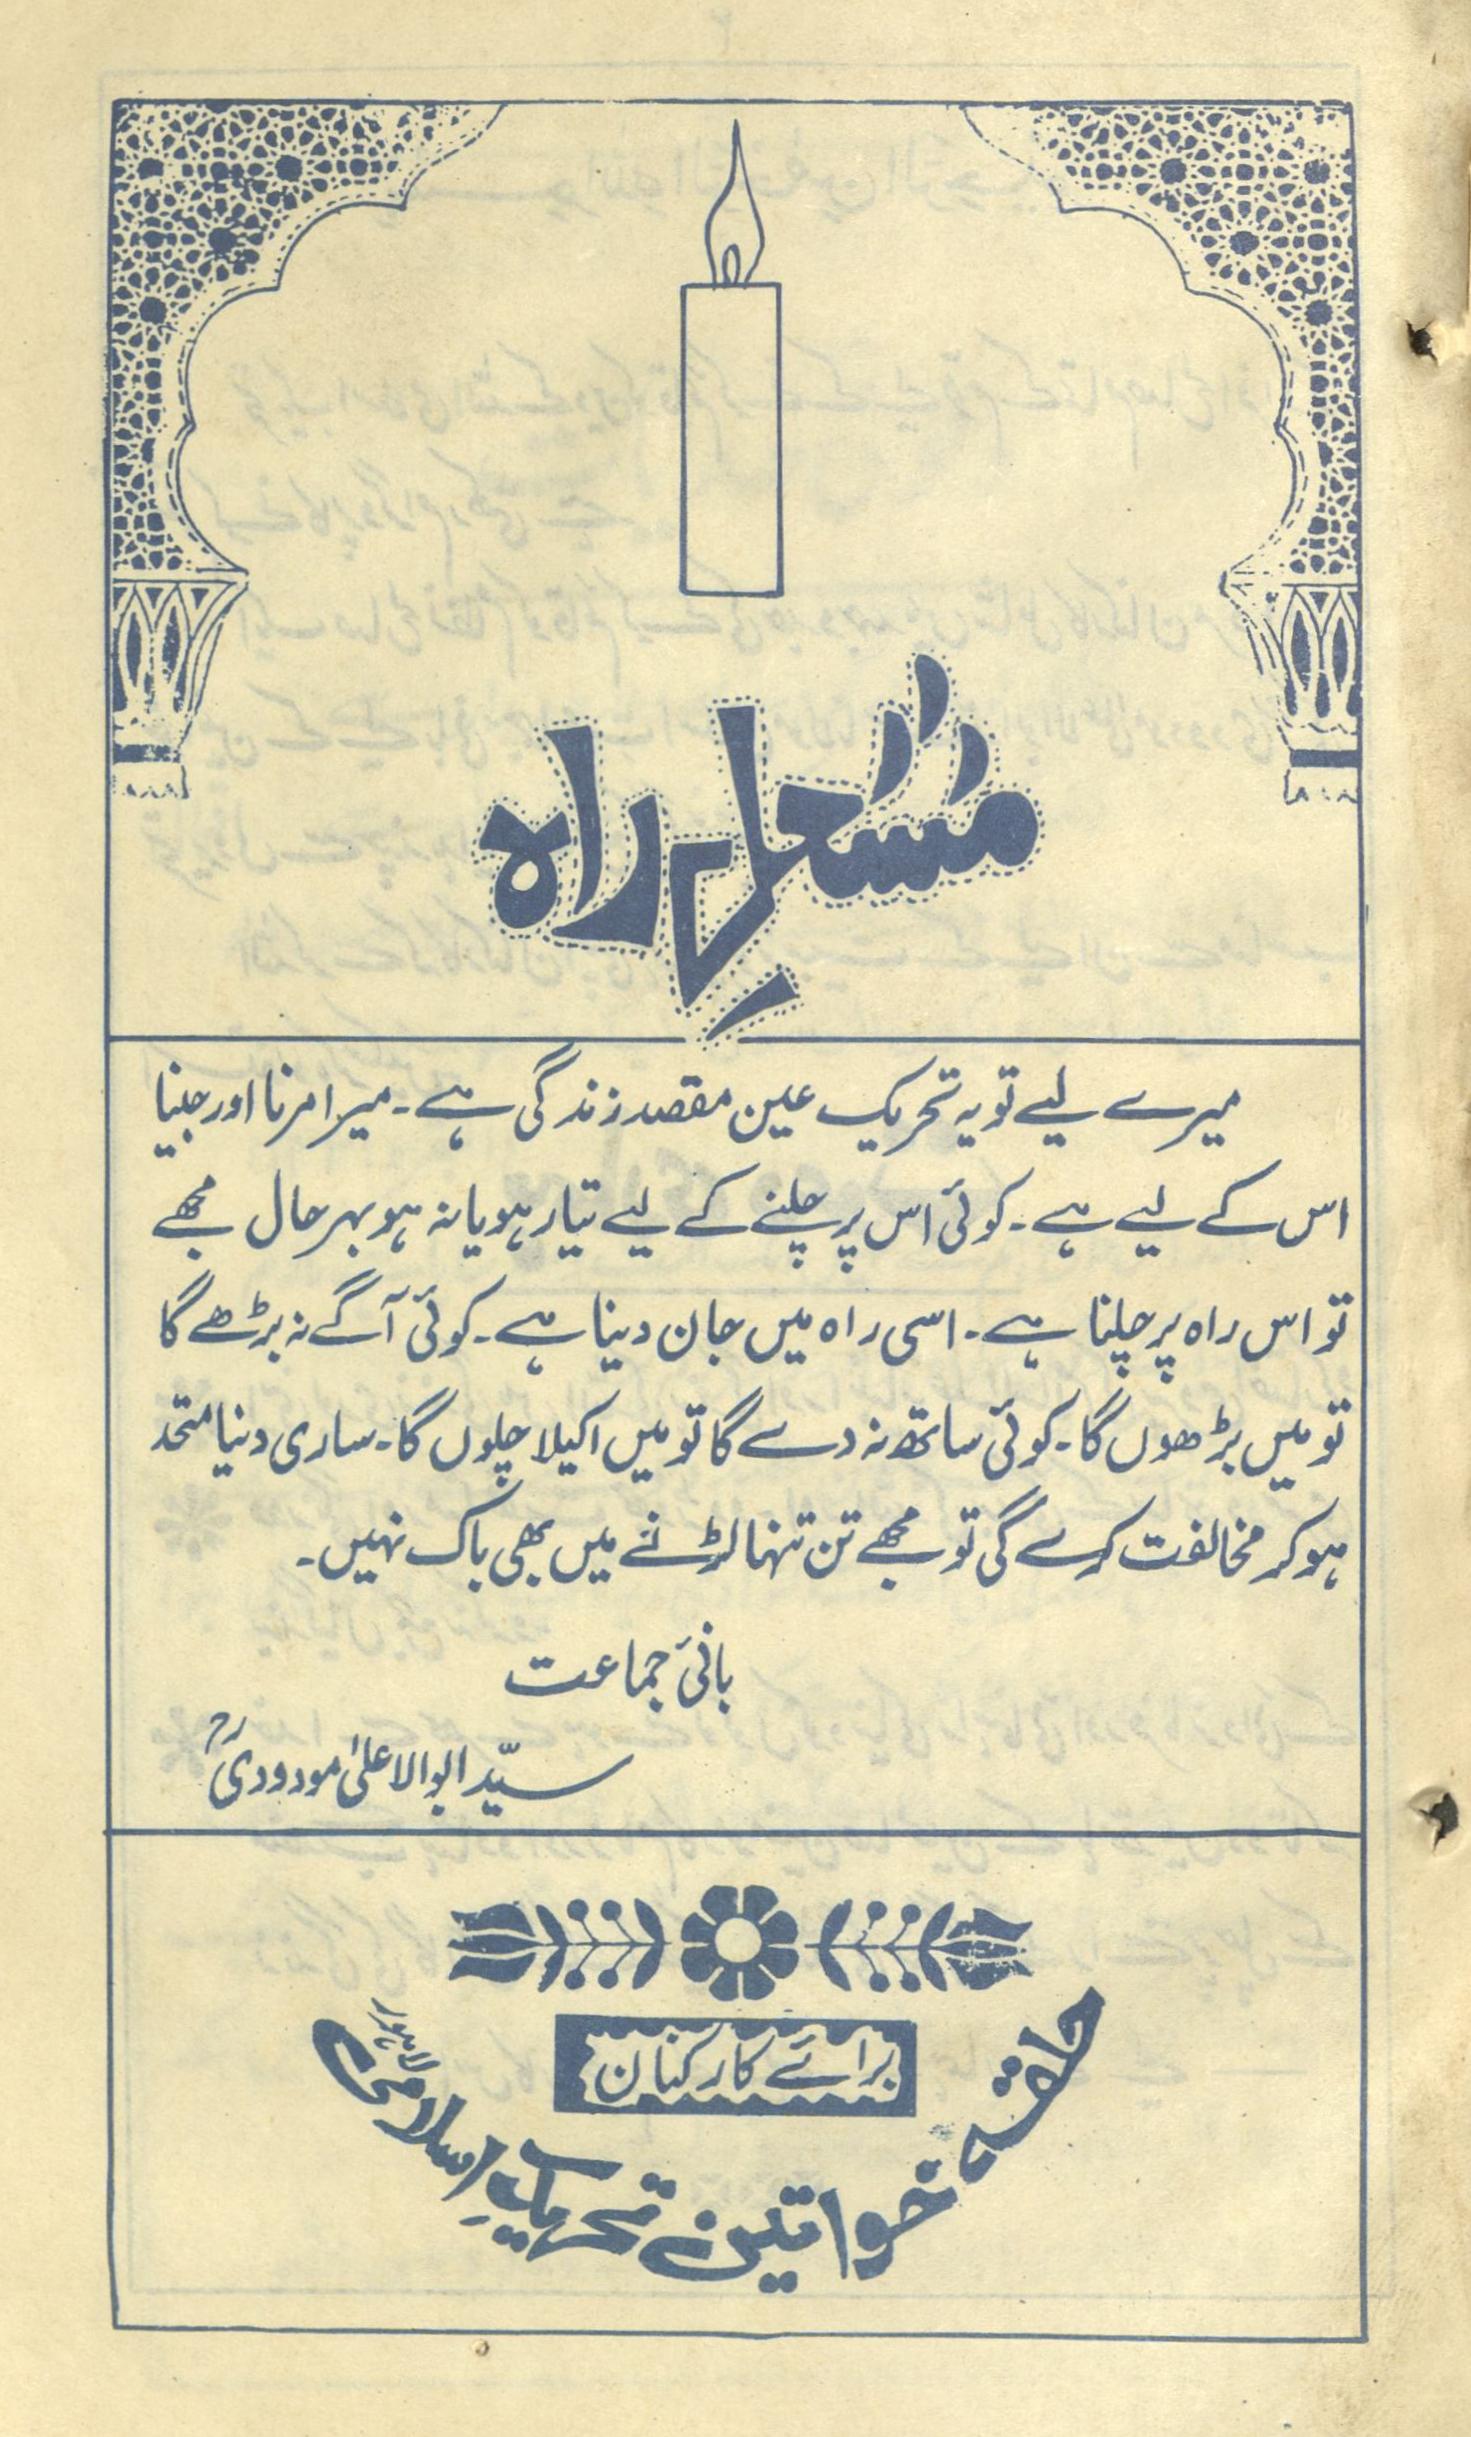 مشعلِ راہ
میرے لیے تو یہ تحریک عین مقصد زندگی ہے۔ میرا مرنا اور جینا
اس کے لیے ہے۔ کوئی اس پر چلنے کے لیے تیار ہو یا نہ ہو بہر حال مجھے
تو اس راہ پر چلنا ہے۔ اسی راہ میں جان دینا ہے۔ کوئی آگے نہ بڑھے گا
تو میں بڑھوں گا۔ کوئی ساتھ نہ دے گا تو میں اکیلا چلوں گا۔ ساری دنیا متحد
ہو کر مخالفت کرے گی تو مجھے تن تنہا لڑنے میں بھی باک نہیں۔
بانیٔ جماعت
سیّد ابوالاعلیٰ مودودیؒ
برائے کارکنان
حلقہ خواتین تحریکِ اسلامی لاہور